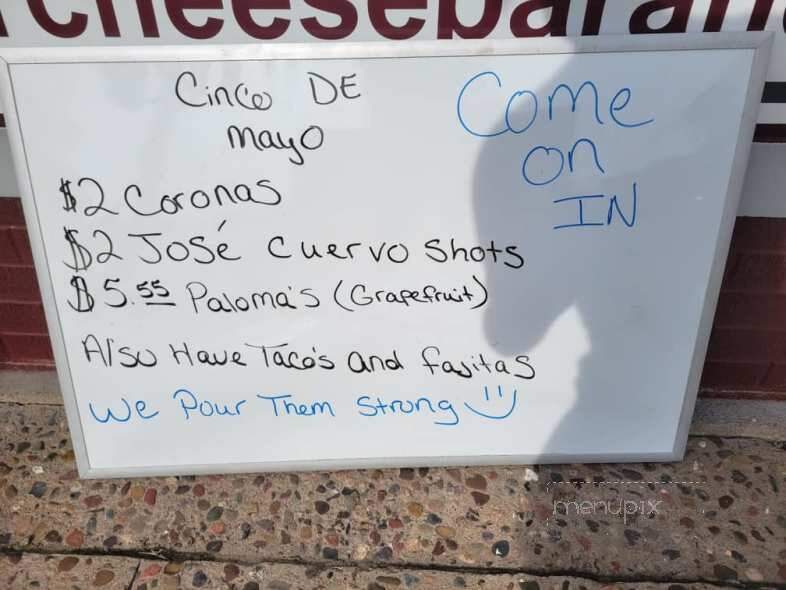 cheesebara
Cinco DE
mayo
Come
on
IN
$2 Coronas
$2 José Cuervo Shots
$5.55 Paloma's (Grapefruit)
Also Have Taco's and fajitas
We Pour Them Strong
menupix